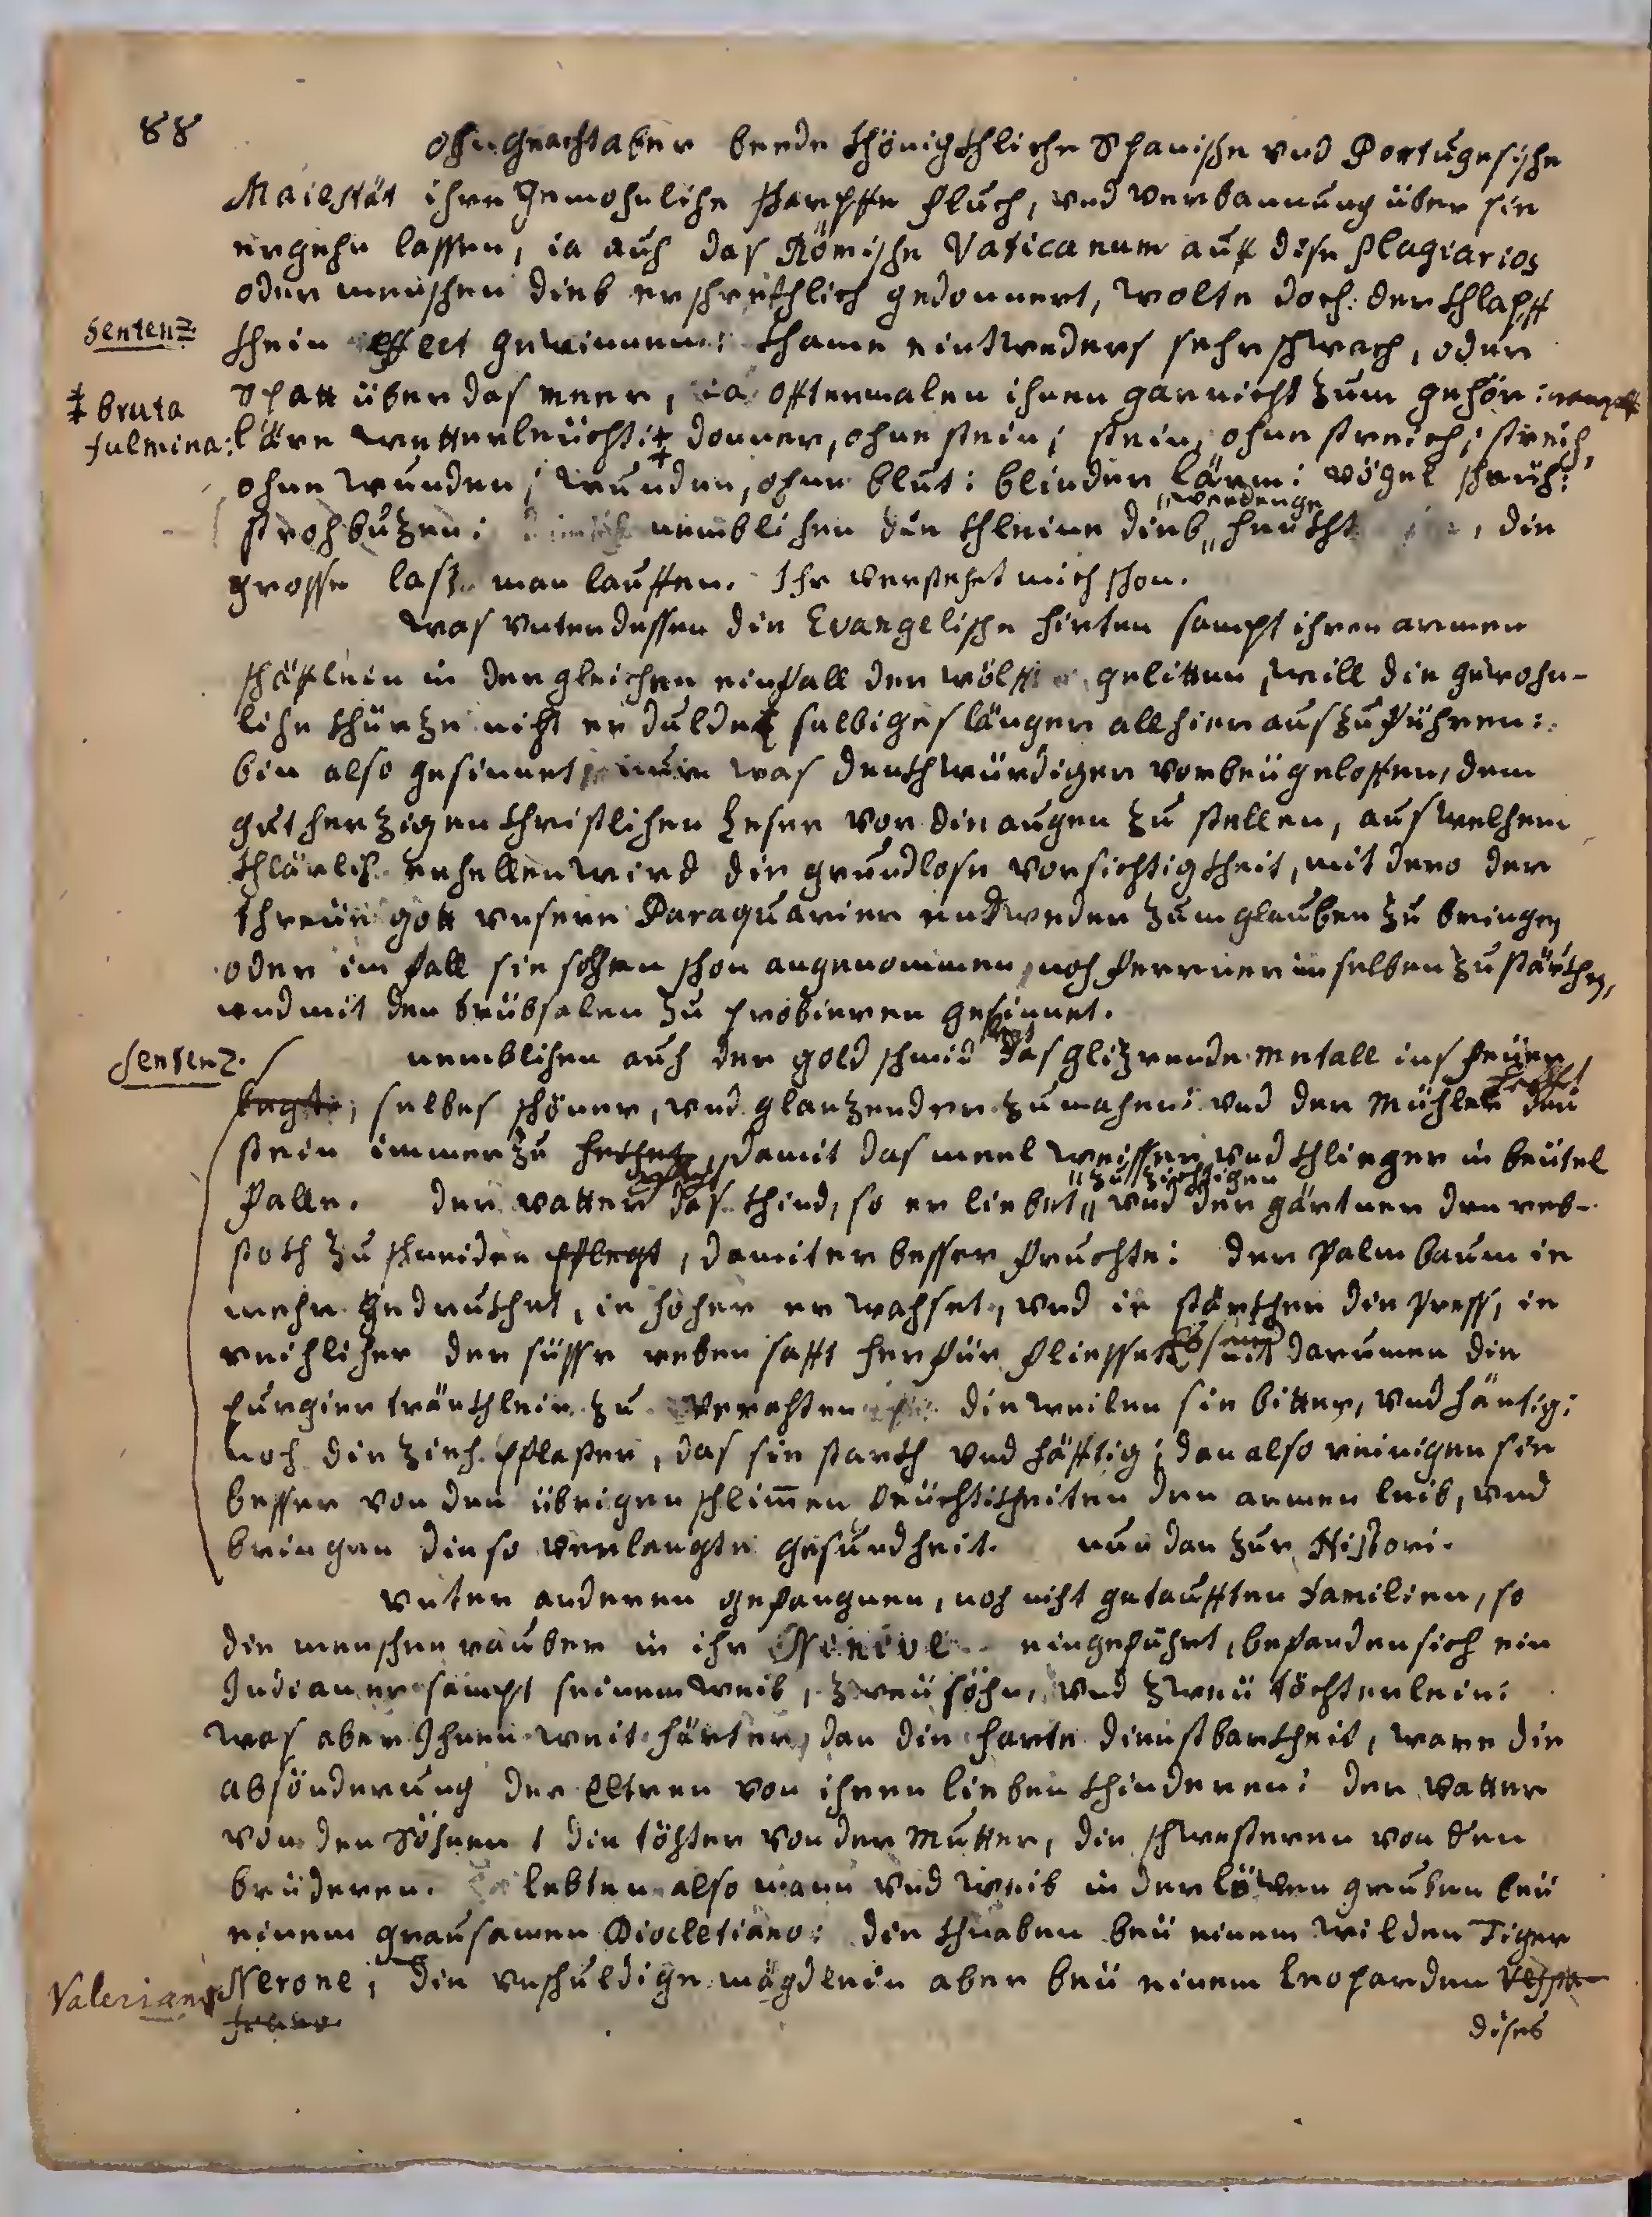 88
ohngeachtaber beede khönigkhliche Spanishe vnd Portugesishe
Maiestät ihre gewohnlihe sharpffe fluch, vnd verbannung über sie
ergehn lassen, ia auh das Römishe Vaticanum auf dise plagiarios
oder menshen dieb ershrökhlich gedonnert, wolte doch der khlapff
Sentenz
khein effect gewinnen: khame eintweders sehr shwach, oder
spatt über das meer, ia offtermalen ihnen gar nicht zum gehör:
‡ bruta
fulmina:
läre wetterleücht: ‡ donner, ohne stein; stein, ohne streich; streich,
ohne wunden; wunden, ohne blut: blinder lärm: vögel sheüh:
strohbuzen: nemblihen die khleine dieb henkht, die
grosse last man lauffen. Ihr versteht mich shon.
was vnterdessen die Evangelishe hirten sampt ihren armen
shäflein in dergleichen einfall der wölff gelitten, will die gewohn-
lihe khürze niht erduldet selbiges länger allhier auszuführen:
bin also gesinnet nur was denkhwürdiger vorbeügeloffen, dem
gutherzigen khristlihen Leser vor die augen zu stellen, aus welhem
khlärlih erhellen wird die grundlose vorsichtigkheit, mit dero der
threüe gott vnsere Paraquarier endweder zum glauben zu bringen
oder im fall sie solhen shon angenommen, noh ferrner in selben zu stärkhen,
vnd mit den trübsalen zu probieren gesinnet.
Sentenz.
nemblihen auh der goldshmid das glizrende metall ins feüer
legte, selbes shöner, vnd glanzender zu mahen: vnd der Mühler den
stein immerzu , damit das meel weisser, vnd khlieger in beütel
zu züchtigen
falle. der vatter das khind, so er liebet,, vnd der gärtner den reb-
stokh zu shneiden pflegt, damit er besser fruchte: der Palmbaum ie
mehr gedrukhet, ie höher er wahset, vnd ie stärkher die press, ie
reihliher der süsse reben safft herfür fliesset darumen die
purgier tränkhlein zu verahten dieweilen sie bitter, vnd häntig:
noch die zieh pflaster, das sie starkh vnd häfftig; dan also reinigen sie
besser von den übrigen shlim̄en feüchtikheiten den armen leib, vnd
bringen die so verlangte gesundheit. nun dan zur Histori.
vnter anderen gefangnen, noh niht getaufften familien, so
die menshen rauber in ihr eingeführt, befanden sich ein
Indianer sampt seinem weib, zweü söhn, vnd zweü töchterlein:
was aber Ihnen weit härter, dan die harte dienstbarkheit, ware die
absönderung der Eltren von ihren lieben khinderen: der vatter
von den Söhnen, die töhter von der Mutter, die shwesteren von den
brüderen. lebten also mann vnd weib in der löwen gruben beü
einem grausamen Diocletiano: die khnaben beü einem wilden Tiger
Nerone; die vnshuldige mägdlein aber beü einem leoparden Vespa-
Valeriano
siano
dises